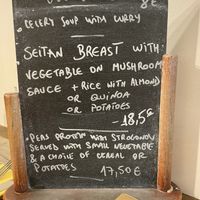 8€
CELERY SOUP WITH CURRY
SEITAN BREAST WITH
VEGETABLE ON MUSHROOM
SAUCE + RICE WITH ALMOND
OR QUINOA
OR POTATOES
- 18,5€
• PEAS PROTEIN WITH STROGONOV
SERVED WITH SMALL VEGETABLE
& A CHOICE OF CEREAL OR
POTATOES 17,50€